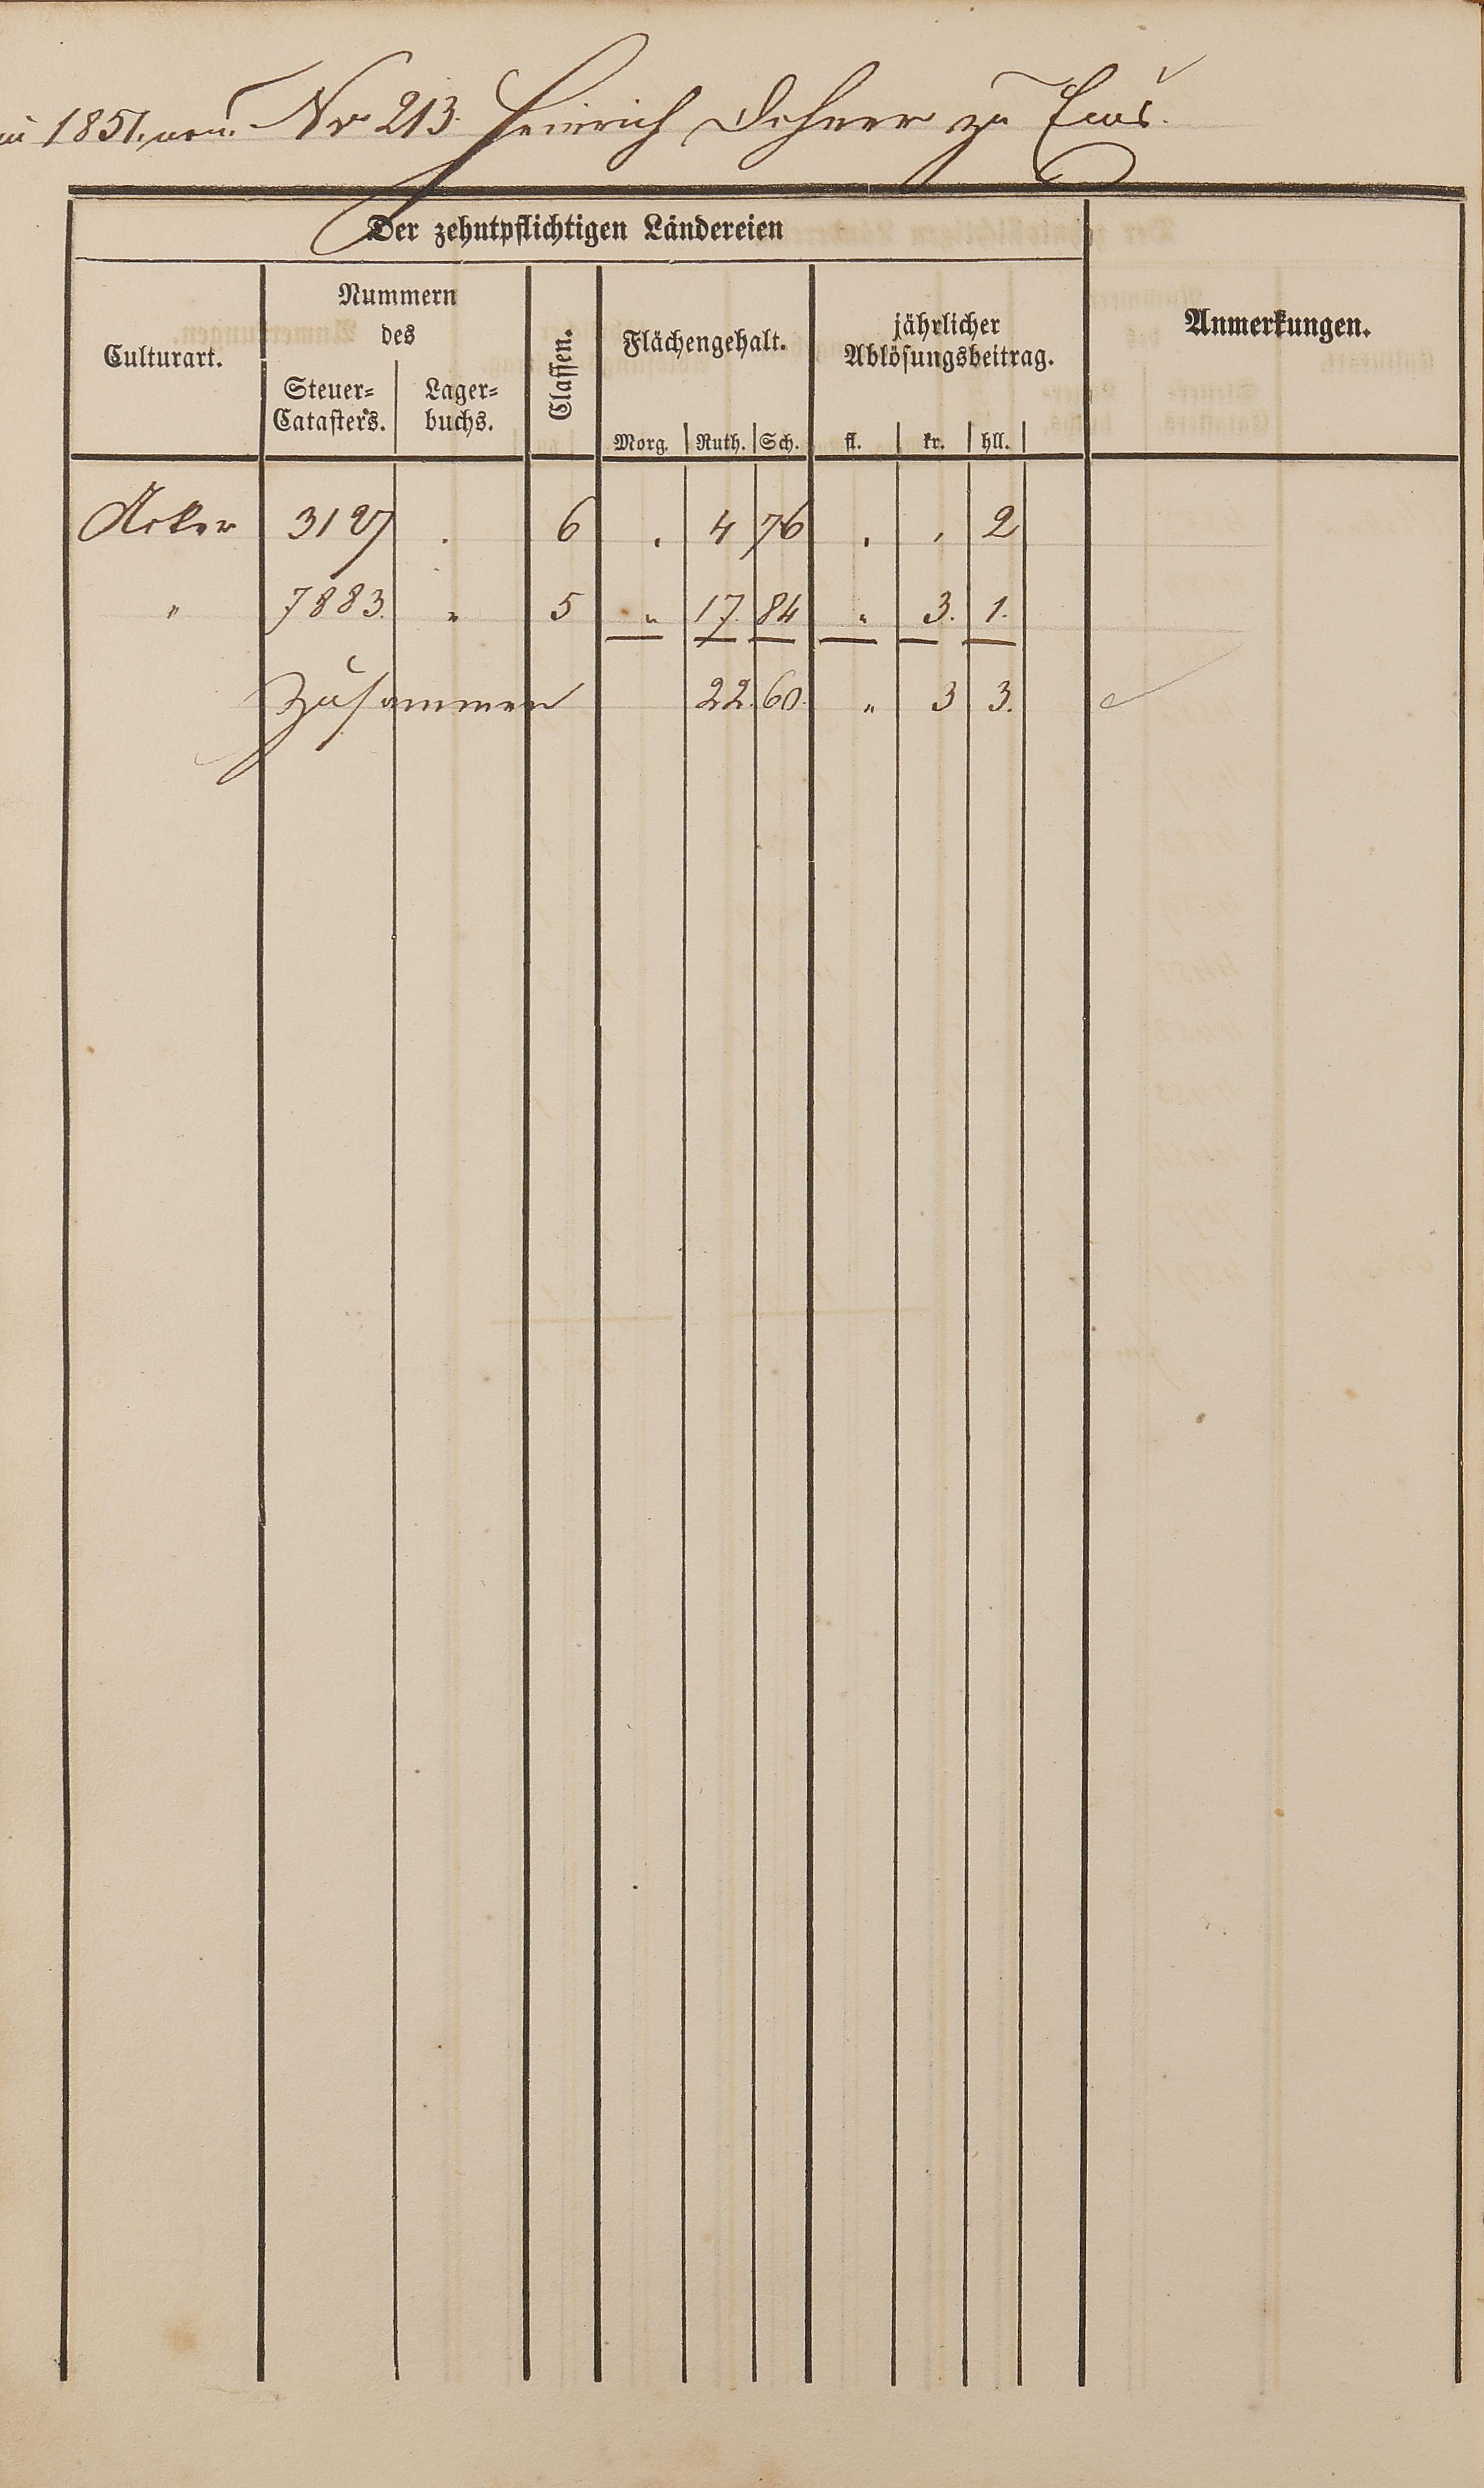 1851. Nr 213. Heinrich zu Ems.
Der zehntpflichtigen Ländereien
Culturart.
Nummern
des
Steuer-
Catasters.
Lager-
buchs.
Classen.
Flächengehalt.
Morg. Ruth. Sch.
jährlicher
Ablösungsbeitrag.
fl. kr. hll.
Anmerkungen.
Acker 3127 . 6 . 4 76 . . 2
" 7883. " 5 " 17. 84 " 3. 1.
Zusammen 22. 60. " 3 3.